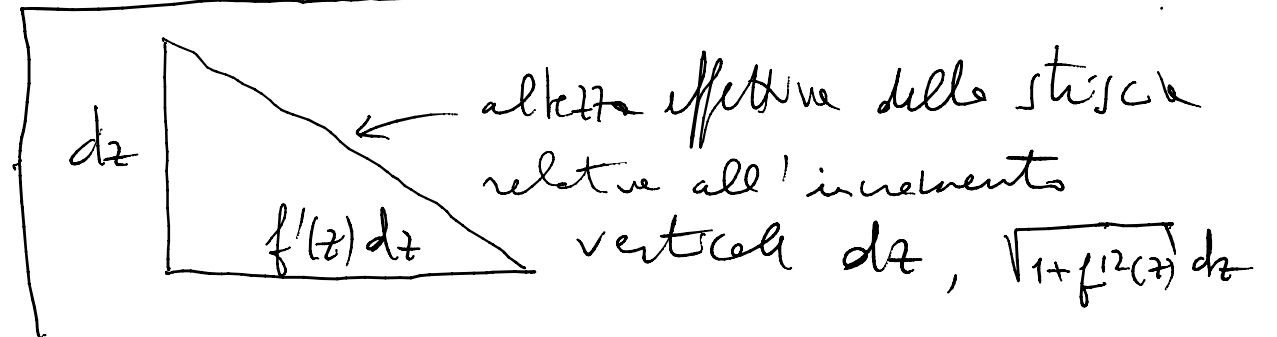 altezza effettiva della striscia
dz
relativa all'incremento
f'(z) dz
verticale dz, √1+f'²(z) dz